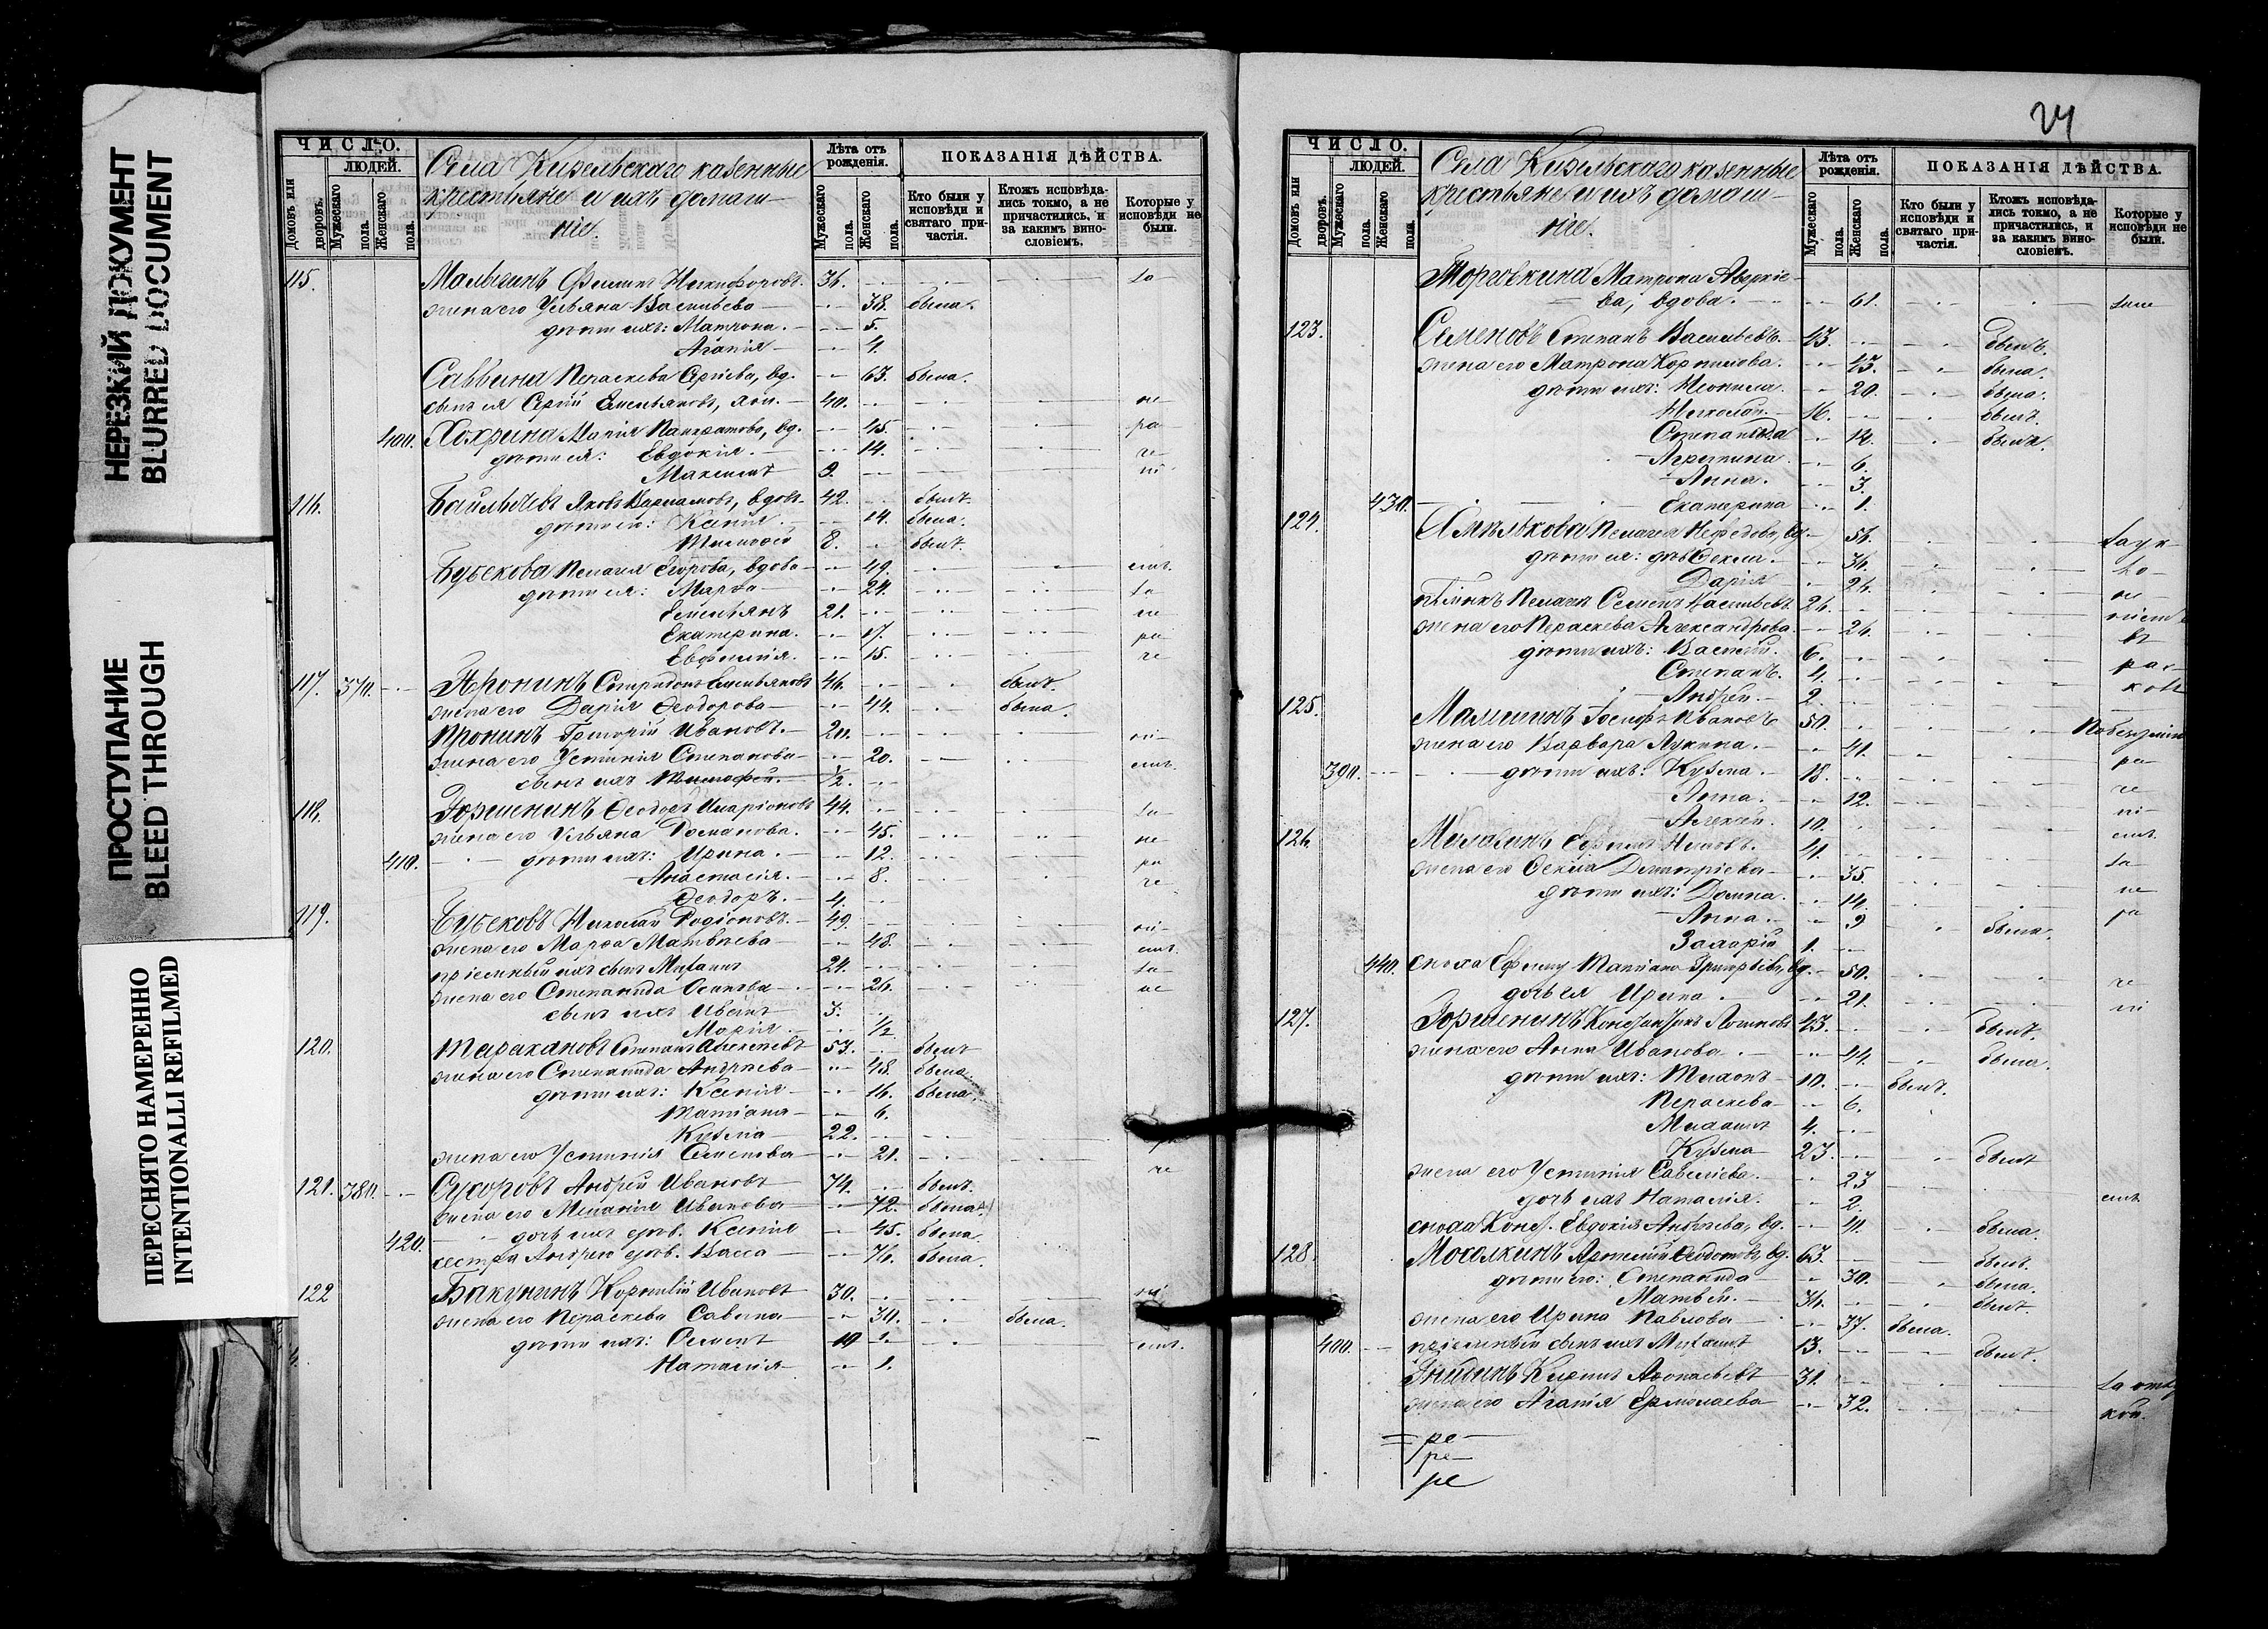 НЕРЕЗКИЙ ДОКУМЕНТ
BLURRED DOCUMENT
ПРОСТУПАНИЕ
BLEED THROUGH
ПЕРЕСНЯТО НАМЕРЕННО
INTENTIONALLI REFILMED
ЧИСЛО.
ЛЮДЕЙ.
Домовъ или дворовъ.
Мужескаго пола.
Женскаго пола.
Села Кизельскаго казенные
крестьяне и ихъ домаш-
ніе.
Лѣта отъ рожденія.
Мужескаго пола.
Женскаго пола.
ПОКАЗАНІЯ ДѢЙСТВА.
Кто были у исповѣди и святаго при-частія.
Ктожъ исповѣда-лись токмо, а не причастились, и за какимъ вино-словіемъ.
Которые у исповѣди не были.
115. Малыгинъ Филипъ Никифоровъ. 36.
жена его Ульяна Васильева 38. была.
дѣти ихъ: Матрона. 5.
Агапія 4.
Саввина Параскева Сергіева, вд. 63. была.
сынъ ея Сергій Емельяновъ, 40. не
400. Хохрина Марія Панкратова, вд. 45. ра
дѣти ея: Евдокія. 14. че
Максимъ 9. ні
116. Яковъ Варламовъ, вдовъ 42. былъ.
дѣти его: Ксенія. 14. была.
Тимофей 8. былъ.
Бузекова Пелагія Егорова, вдова 49. емъ.
дѣти ея: Марфа 24. за
Емельянъ 21. не
Екатерина. 17. ра
Евфимія. 15. че
117. 370. Пронинъ Спиридонъ Емельяновъ 46. былъ.
жена его Дарія Ѳеодорова 44. была.
Пронинъ Григорій Ивановъ. 20. ні
жена его Устинія Степанова 20. емъ.
сынъ ихъ Тимофей. 1/2.
118. Горшенинъ Ѳеодоръ Иларіоновъ 44. за
жена его Ульяна Романова. 45. не
410. дѣти ихъ: Ирина. 12. ра
Анастасія. 8. че
Ѳеодоръ. 4.
119. Бузековъ Николай Родіоновъ. 49. ні
жена его Марфа Матвѣева 48. емъ.
пріемный ихъ сынъ Михаилъ 24. за
жена его Степанида Осипова 26. не
сынъ ихъ Иванъ 3.
Марія. 1/2
120. Таракановъ Степанъ Алексѣевъ 53. былъ
жена его Степанида Андреева 48. была.
дѣти ихъ: Ксенія 16. была.
Татіана 6.
Кузьма 22.
жена его Устинія Семенова 21. че
121. 380. Сухоровъ Андрей Ивановъ 74. былъ.
жена его Меланія Иванова 72. была.
420. дочь ихъ дѣв. Ксенія 45. была.
сестра Андрею дѣв. Васса 76. была.
122 Бакунинъ Корнилій Ивановъ 30. ні
жена его Параскева Савина 30. была.
дѣти ихъ: Семенъ 10 емъ.
Наталія 1.
24
ЧИСЛО.
ЛЮДЕЙ.
Домовъ или дворовъ.
Мужескаго пола.
Женскаго пола.
Села Кизельскаго казенные
крестьяне и ихъ домаш-
ніе.
Лѣта отъ рожденія.
Мужескаго пола.
Женскаго пола.
ПОКАЗАНІЯ ДѢЙСТВА.
Кто были у исповѣди и святаго при-частія.
Ктожъ исповѣда-лись токмо, а не причастились, и за какимъ вино-словіемъ.
Которые у исповѣди не были.
Торговкина Матрона Аверкіе-
ва, вдова. 61.
123. Семеновъ Степанъ Васильевъ. 43. былъ.
жена его Матрона Корнилова. 43. была.
дѣти ихъ: Неонила. 20. была.
Николай. 16. былъ.
Степанида 14. была.
Агрипина. 6.
Анна. 3.
430. Екатерина 1.
124. Пелагія Нефедова, вд. 56.
дѣти ея: дѣв. Ѳекла. 36. за
Дарія 26. не
Семенъ Васильевъ 26.
жена его Параскева Александрова. 24.
дѣти ихъ: Василій. 6.
Степанъ. 4.
Андрей. 2.
125. Малыгинъ Іосифъ Ивановъ 50.
жена его Варвара Лукина. 41. ра
390. дѣти ихъ: Кузьма. 18. че
Анна. 12. ні
Алексѣй. 10. емъ.
126. Ефимъ 41. за
жена его Ѳекла Димитріева 35 не
дѣти ихъ: Домна. 14. ра
Анна. 9 была.
Захарій 1.
440. сноха Ефиму Татіана Григорьева, вд. 50. че
дочь ея Ирина. 21. ні
127. Горшенинъ Константинъ Логиновъ 43. былъ.
жена его Анна Иванова. 44. была.
дѣти ихъ: Тихонъ 10. былъ.
Параскева 6.
Михаилъ 4.
Кузьма 23. былъ
жена его Устинія Савельева. 23
дочь ихъ Наталія. 2. емъ
сноха Конст. Евдокія Андреева, вд. 41. была.
128. Мохалкинъ Артемій Ѳедотовъ, вд. 63. былъ.
дѣти его: Степанида 30. была.
Матвей. 36. былъ
жена его Ирина Павлова 37. была.
400. пріемный сынъ ихъ Михаилъ 13. былъ.
Гнидинъ Кирилъ Афонасьевъ 31.
жена его Агапія Ермолаева 32.
ре
ре
ре